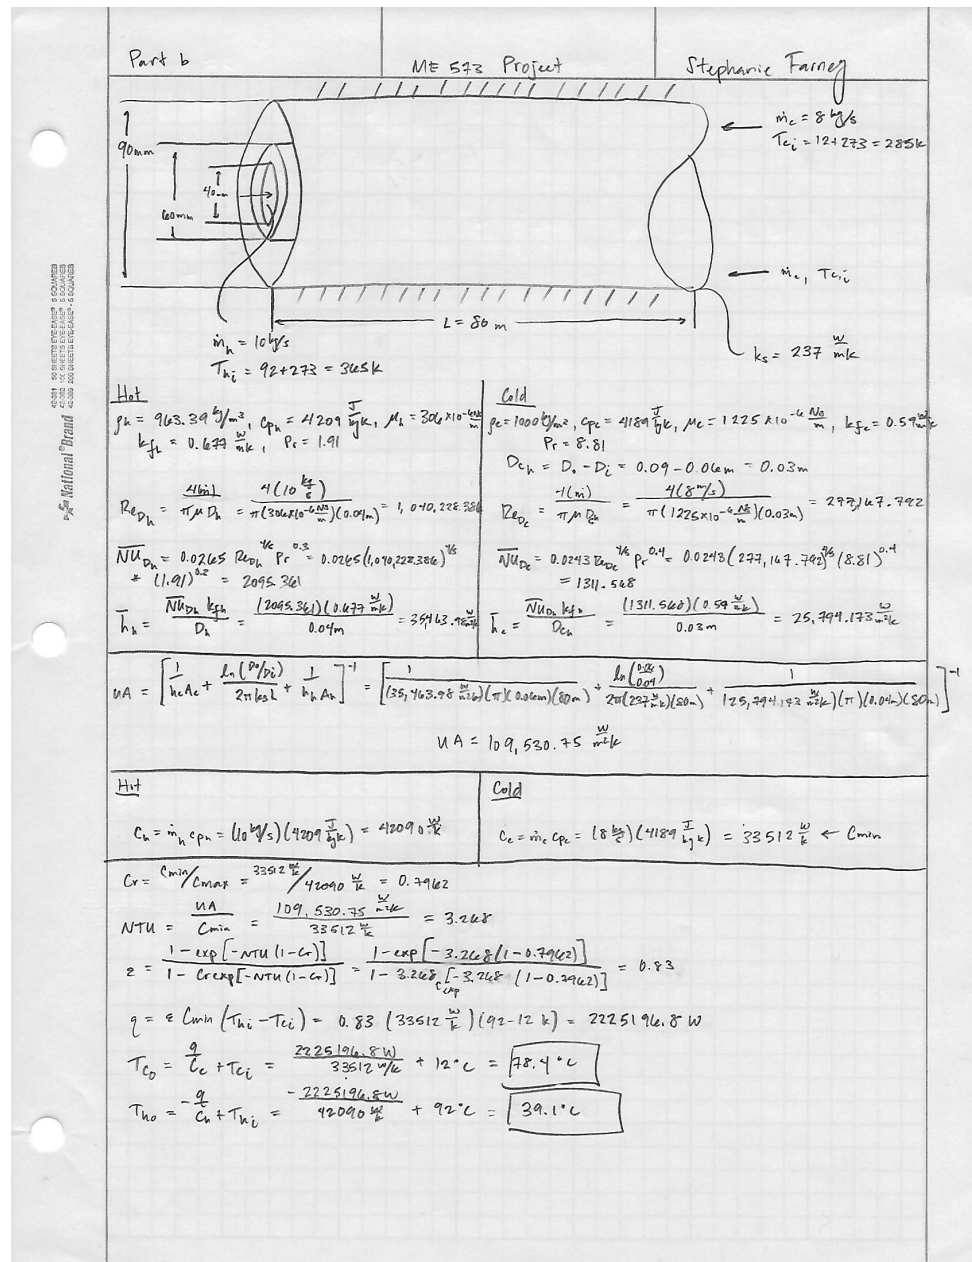 Part b ME 573 Project Stephanie Farney
ṁc = 8 kg/s
Tci = 12+273 = 285K
90mm
40mm
60mm
ṁc, Tci
L = 80 m
ks = 237 W/mK
ṁh = 10 kg/s
Thi = 92+273 = 365K
42-381 50 SHEETS EYE-EASE® 5 SQUARES
42-382 100 SHEETS EYE-EASE® 5 SQUARES
42-389 200 SHEETS EYE-EASE® 5 SQUARES
National®Brand
Hot
ρh = 963.39 kg/m³, cph = 4209 J/kgK, μh = 306×10⁻⁶ Ns/m
kfh = 0.677 W/mK, Pr = 1.91
ReDh = 4(ṁ)/πμDh = 4(10 kg/s)/π(306×10⁻⁶ Ns/m)(0.04m) = 1,040,228.386
NUDh = 0.0265 ReDh^4/5 Pr^0.3 = 0.0265(1,040,228.386)^4/5
* (1.91)^0.3 = 2095.361
hh = NUDh kfh/Dh = (2095.361)(0.677 W/mK)/0.04m = 35463.98 W/m²K
Cold
ρc = 1000 kg/m³, cpc = 4189 J/kgK, μc = 1225×10⁻⁶ Ns/m, kfc = 0.59 W/mK
Pr = 8.81
Dch = Do - Di = 0.09 - 0.06m = 0.03m
ReDc = 4(ṁ)/πμDch = 4(8 m/s)/π(1225×10⁻⁶ Ns/m)(0.03m) = 277,167.792
NUDc = 0.0243 ReDc^4/5 Pr^0.4 = 0.0243(277,167.792)^4/5 (8.81)^0.4
= 1311.568
hc = NUDh kfh/Dch = (1311.568)(0.59 W/mK)/0.03m = 25,794.173 W/m²K
UA = [1/hcAc + ln(Do/Di)/2πksL + 1/hhAh]^-1 = [1/(35,463.98 W/m²K)(π)(0.06m)(80m) + ln(0.06/0.04)/2π(237 W/mK)(80m) + 1/(25,794.173 W/m²K)(π)(0.04m)(80m)]^-1
UA = 109,530.75 W/m²K
Hot
Ch = ṁh cph = (10 kg/s)(4209 J/kgK) = 42090 W/K
Cold
Cc = ṁc cpc = (8 kg/s)(4189 J/kgK) = 33512 W/K ← Cmin
Cr = Cmin/Cmax = 33512 W/K/42090 W/K = 0.7962
NTU = UA/Cmin = 109,530.75 W/m²K/33512 W/K = 3.268
ε = 1-exp[-NTU(1-Cr)]/1-Cr exp[-NTU(1-Cr)] = 1-exp[-3.268(1-0.7962)]/1-3.268 exp[-3.268(1-0.7962)] = 0.83
q = ε Cmin (Thi-Tci) = 0.83 (33512 W/K)(92-12 K) = 2225196.8 W
Tco = q/Cc + Tci = 2225196.8W/33512 W/K + 12°C = 78.4°C
Tho = -q/Ch + Thi = -2225196.8W/42090 W/K + 92°C = 39.1°C